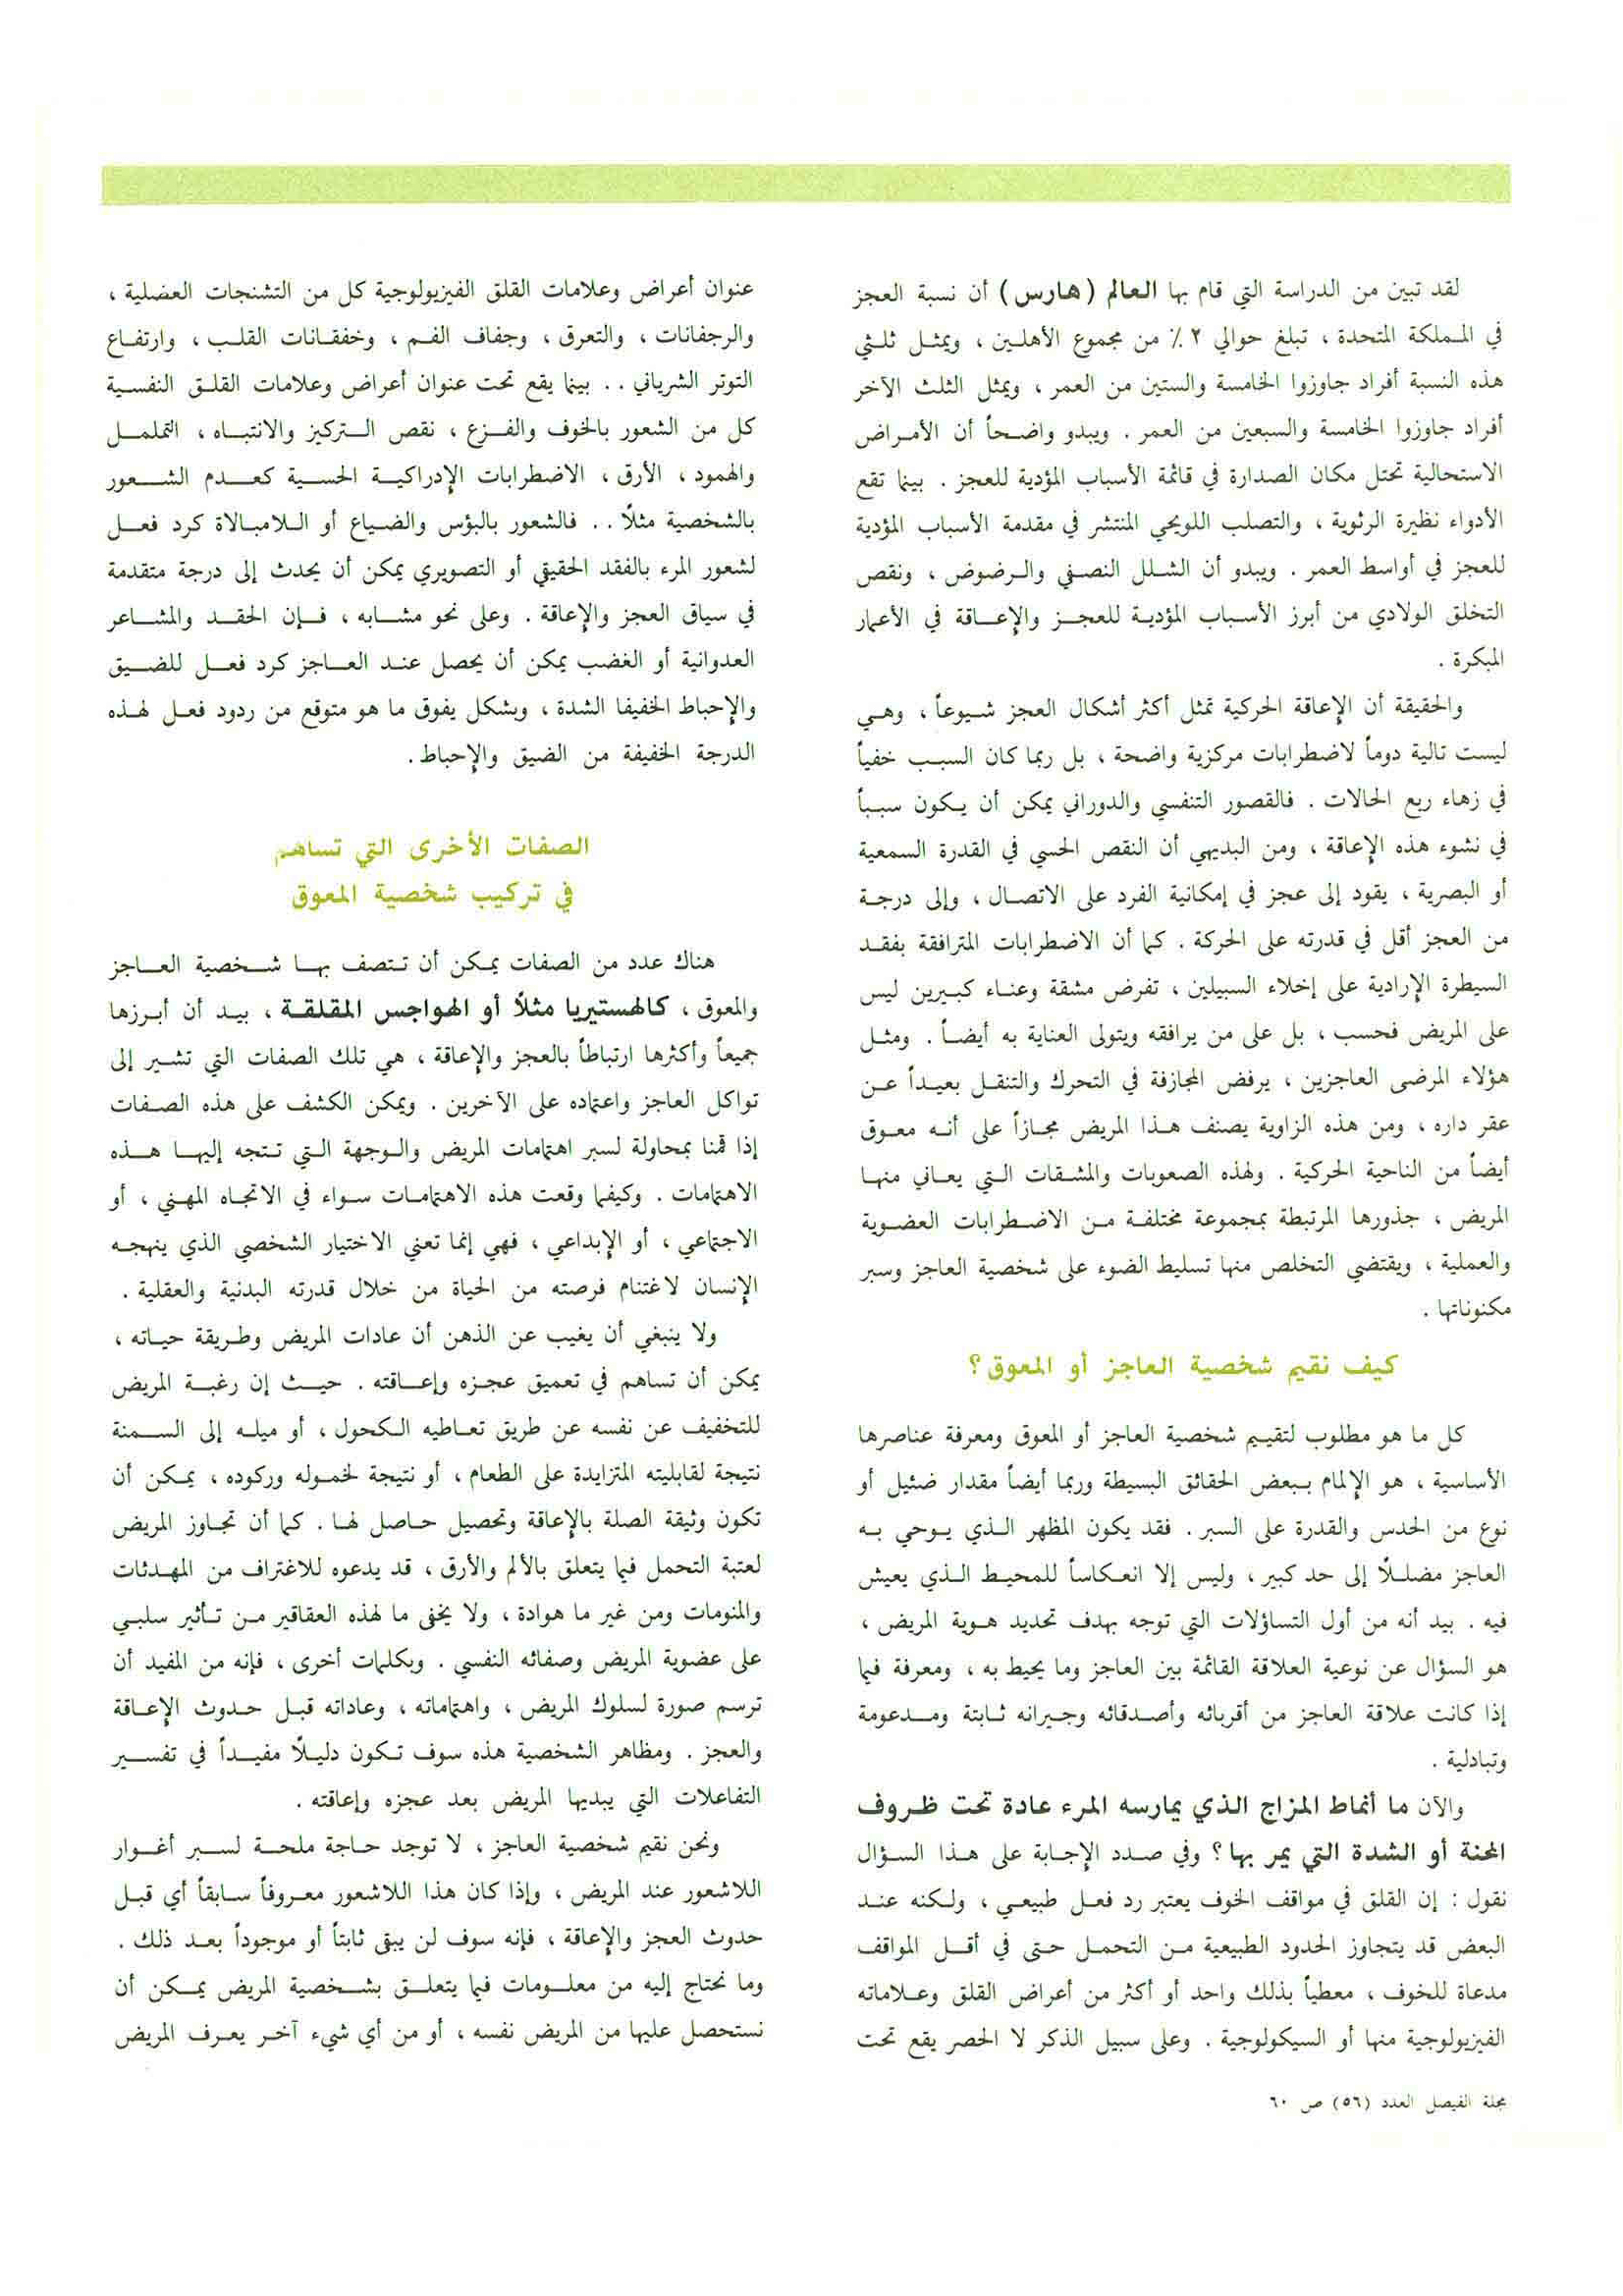 لقد تبين من الدراسة التي قام بها العالم (هارس) أن نسبة العجز
في المملكة المتحدة ، تبلغ حوالي ٢ ٪ من مجموع الأهلين ، ويمثل ثلثي
هذه النسبة أفراد جاوزوا الخامسة والستين من العمر ، ويمثل الثلث الآخر
أفراد جاوزوا الخامسة والسبعين من العمر . ويبدو واضحاً أن الأمراض
الاستحالية تحتل مكان الصدارة في قائمة الأسباب المؤدية للعجز . بينما تقع
الأدواء نظيرة الرثوية ، والتصلب اللويحي المنتشر في مقدمة الأسباب المؤدية
للعجز في أواسط العمر . ويبدو أن الشلل النصفي والرضوض ، ونقص
التخلق الولادي من أبرز الأسباب المؤدية للعجز والإعاقة في الأعمار
المبكرة .
والحقيقة أن الإعاقة الحركية تمثل أكثر أشكال العجز شيوعاً ، وهي
ليست تالية دوماً لاضطرابات مركزية واضحة ، بل ربما كان السبب خفياً
في زهاء ربع الحالات . فالقصور التنفسي والدوراني يمكن أن يكون سبباً
في نشوء هذه الإعاقة ، ومن البديهي أن النقص الحسي في القدرة السمعية
أو البصرية ، يقود إلى عجز في إمكانية الفرد على الاتصال ، وإلى درجة
من العجز أقل في قدرته على الحركة . كما أن الاضطرابات المترافقة بفقد
السيطرة الإرادية على إخلاء السبيلين ، تفرض مشقة وعناء كبيرين ليس
على المريض فحسب ، بل على من يرافقه ويتولى العناية به أيضاً . ومثل
هؤلاء المرضى العاجزين ، يرفض المجازفة في التحرك والتنقل بعيداً عن
عقر داره ، ومن هذه الزاوية يصنف هذا المريض مجازاً على أنه معوق
أيضاً من الناحية الحركية . ولهذه الصعوبات والمشقات التي يعاني منها
المريض ، جذورها المرتبطة بمجموعة مختلفة من الاضطرابات العضوية
والعملية ، ويقتضي التخلص منها تسليط الضوء على شخصية العاجز وسبر
مكنوناتها .
كيف نقيم شخصية العاجز أو المعوق ؟
كل ما هو مطلوب لتقييم شخصية العاجز أو المعوق ومعرفة عناصرها
الأساسية ، هو الإلمام ببعض الحقائق البسيطة وربما أيضاً مقدار ضئيل أو
نوع من الحدس والقدرة على السبر . فقد يكون المظهر الذي يوحي به
العاجز مضللاً إلى حد كبير ، وليس إلا انعكاساً للمحيط الذي يعيش
فيه . بيد أنه من أول التساؤلات التي توجه بهدف تحديد هوية المريض ،
هو السؤال عن نوعية العلاقة القائمة بين العاجز وما يحيط به ، ومعرفة فيما
إذا كانت علاقة العاجز من أقربائه وأصدقائه وجيرانه ثابتة ومدعومة
وتبادلية .
والآن ما أنماط المزاج الذي يمارسه المرء عادة تحت ظروف
المحنة أو الشدة التي يمر بها ؟ وفي صدد الإجابة على هذا السؤال
نقول : إن القلق في مواقف الخوف يعتبر رد فعل طبيعي ، ولكنه عند
البعض قد يتجاوز الحدود الطبيعية من التحمل حتى في أقل المواقف
مدعاة للخوف ، معطياً بذلك واحد أو أكثر من أعراض القلق وعلاماته
الفيزيولوجية منها أو السيكولوجية . وعلى سبيل الذكر لا الحصر يقع تحت
عنوان أعراض وعلامات القلق الفيزيولوجية كل من التشنجات العضلية ،
والرجفانات ، والتعرق ، وجفاف الفم ، وخفقانات القلب ، وارتفاع
التوتر الشرياني . . بينما يقع تحت عنوان أعراض وعلامات القلق النفسية
كل من الشعور بالخوف والفزع ، نقص التركيز والانتباه ، التململ
والهمود ، الأرق ، الاضطرابات الإدراكية الحسية كعدم الشعور
بالشخصية مثلاً . . فالشعور بالبؤس والضياع أو اللامبالاة كرد فعل
لشعور المرء بالفقد الحقيقي أو التصويري يمكن أن يحدث إلى درجة متقدمة
في سياق العجز والإعاقة . وعلى نحو مشابه ، فإن الحقد والمشاعر
العدوانية أو الغضب يمكن أن يحصل عند العاجز كرد فعل للضيق
والإحباط الخفيفا الشدة ، وبشكل يفوق ما هو متوقع من ردود فعل لهذه
الدرجة الخفيفة من الضيق والإحباط .
الصفات الأخرى التي تساهم
في تركيب شخصية المعوق
هناك عدد من الصفات يمكن أن تتصف بها شخصية العاجز
والمعوق ، كالهستيريا مثلاً أو الهواجس المقلقة ، بيد أن أبرزها
جميعاً وأكثرها ارتباطاً بالعجز والإعاقة ، هي تلك الصفات التي تشير إلى
تواكل العاجز واعتماده على الآخرين . ويمكن الكشف على هذه الصفات
إذا قمنا بمحاولة لسبر اهتمامات المريض والوجهة التي تتجه إليها هذه
الاهتمامات . وكيفما وقعت هذه الاهتمامات سواء في الاتجاه المهني ، أو
الاجتماعي ، أو الإبداعي ، فهي إنما تعني الاختيار الشخصي الذي ينهجه
الإنسان لاغتنام فرصته من الحياة من خلال قدرته البدنية والعقلية .
ولا ينبغي أن يغيب عن الذهن أن عادات المريض وطريقة حياته ،
يمكن أن تساهم في تعميق عجزه وإعاقته . حيث إن رغبة المريض
للتخفيف عن نفسه عن طريق تعاطيه الكحول ، أو ميله إلى السمنة
نتيجة لقابليته المتزايدة على الطعام ، أو نتيجة لخموله وركوده ، يمكن أن
تكون وثيقة الصلة بالإعاقة وتحصيل حاصل لها . كما أن تجاوز المريض
لعتبة التحمل فيما يتعلق بالألم والأرق ، قد يدعوه للاغتراف من المهدئات
والمنومات ومن غير ما هوادة ، ولا يخفى ما لهذه العقاقير من تأثير سلبي
على عضوية المريض وصفائه النفسي . وبكلمات أخرى ، فإنه من المفيد أن
ترسم صورة لسلوك المريض ، واهتماماته ، وعاداته قبل حدوث الإعاقة
والعجز . ومظاهر الشخصية هذه سوف تكون دليلاً مفيداً في تفسير
التفاعلات التي يبديها المريض بعد عجزه وإعاقته .
ونحن نقيم شخصية العاجز ، لا توجد حاجة ملحة لسبر أغوار
اللاشعور عند المريض ، وإذا كان هذا اللاشعور معروفاً سابقاً أي قبل
حدوث العجز والإعاقة ، فإنه سوف لن يبقى ثابتاً أو موجوداً بعد ذلك .
وما نحتاج إليه من معلومات فيما يتعلق بشخصية المريض يمكن أن
نستحصل عليها من المريض نفسه ، أو من أي شيء آخر يعرف المريض
مجلة الفيصل العدد (٥٦) ص ٦٠